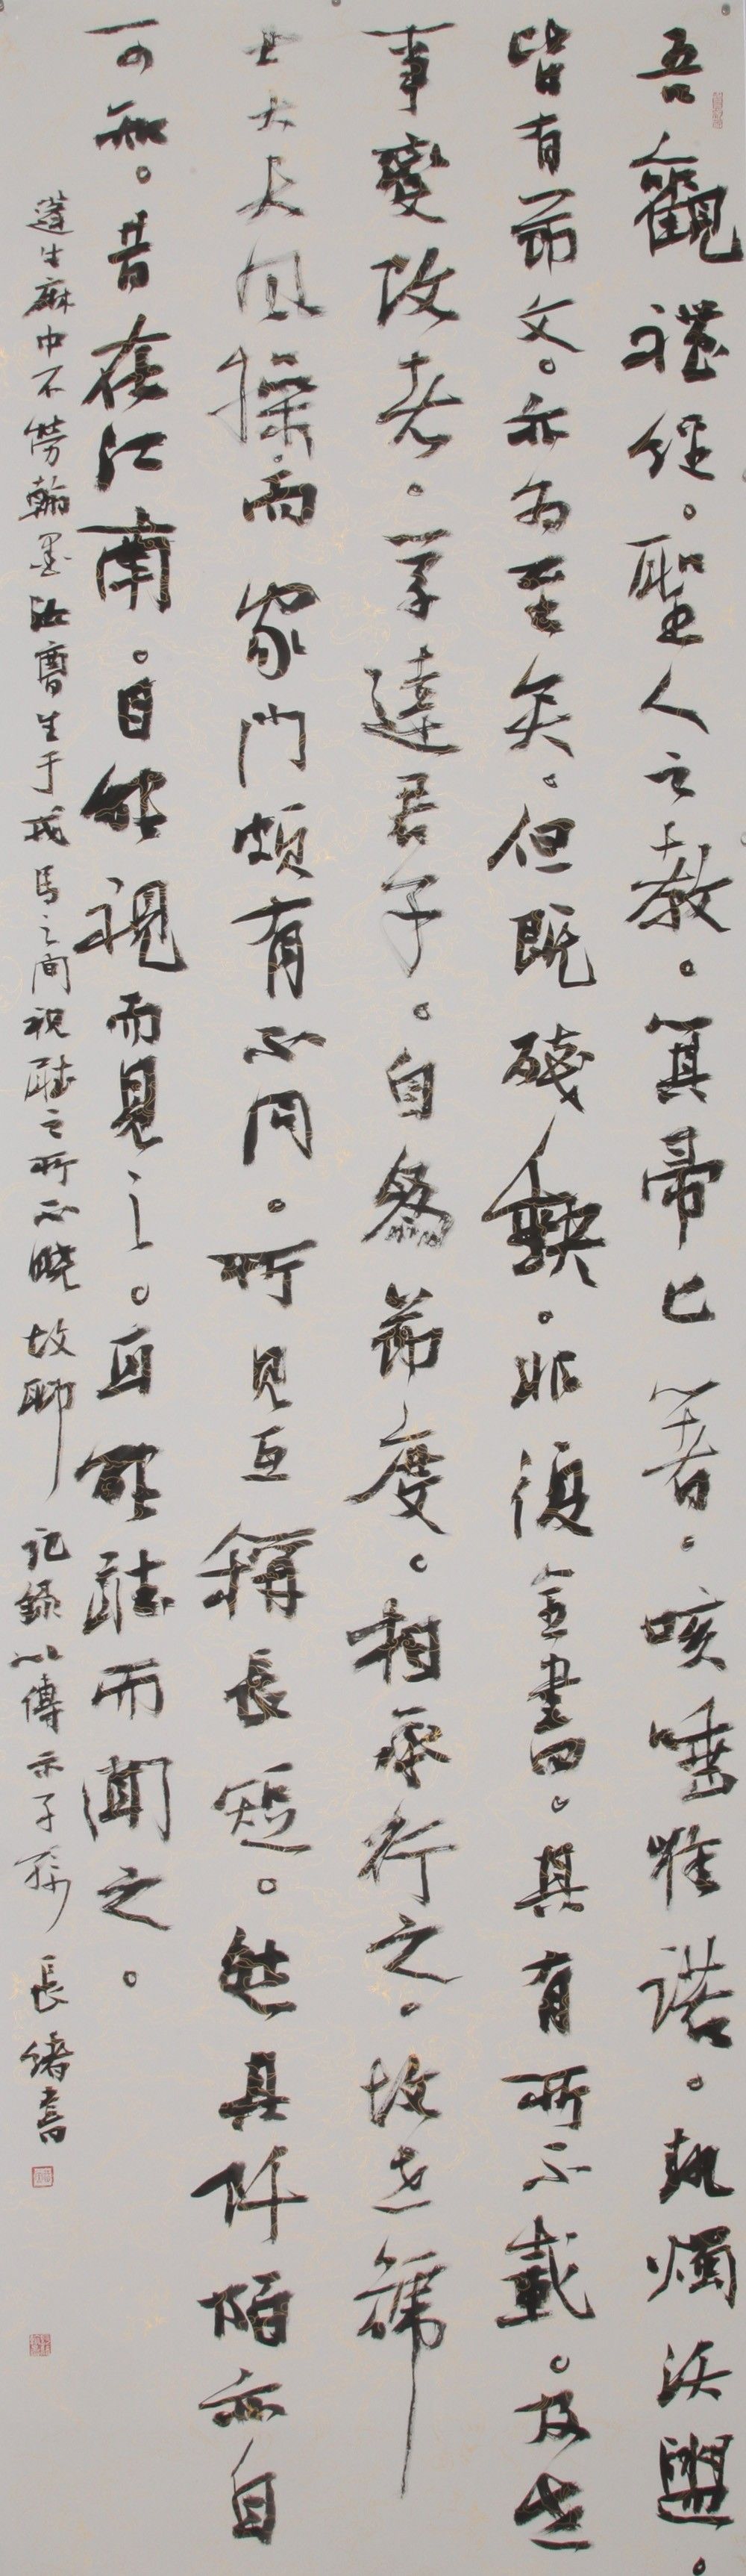 吾觀禮經。聖人之教。箕帚匕箸。咳唾唯諾。執燭沃盥。
皆有節文。亦为至矣。但既殘缺。非復全書。其有所不載。及世
事變改者。学達君子。自為節度。相承行之。故世號
士大夫風操。而家門頗有不同。所見互稱長短。然其阡陌亦自
可知。昔在江南。目能視而見之。耳能聽而聞之。
蓬生麻中不勞翰墨汝曹生于戎馬之间視聽之所不曉故聊記錄以傳示子孫 長緒書